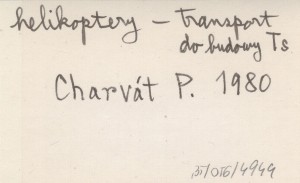 helikoptery – transport
do budowy Ts
Charvát P. 1980
/4949